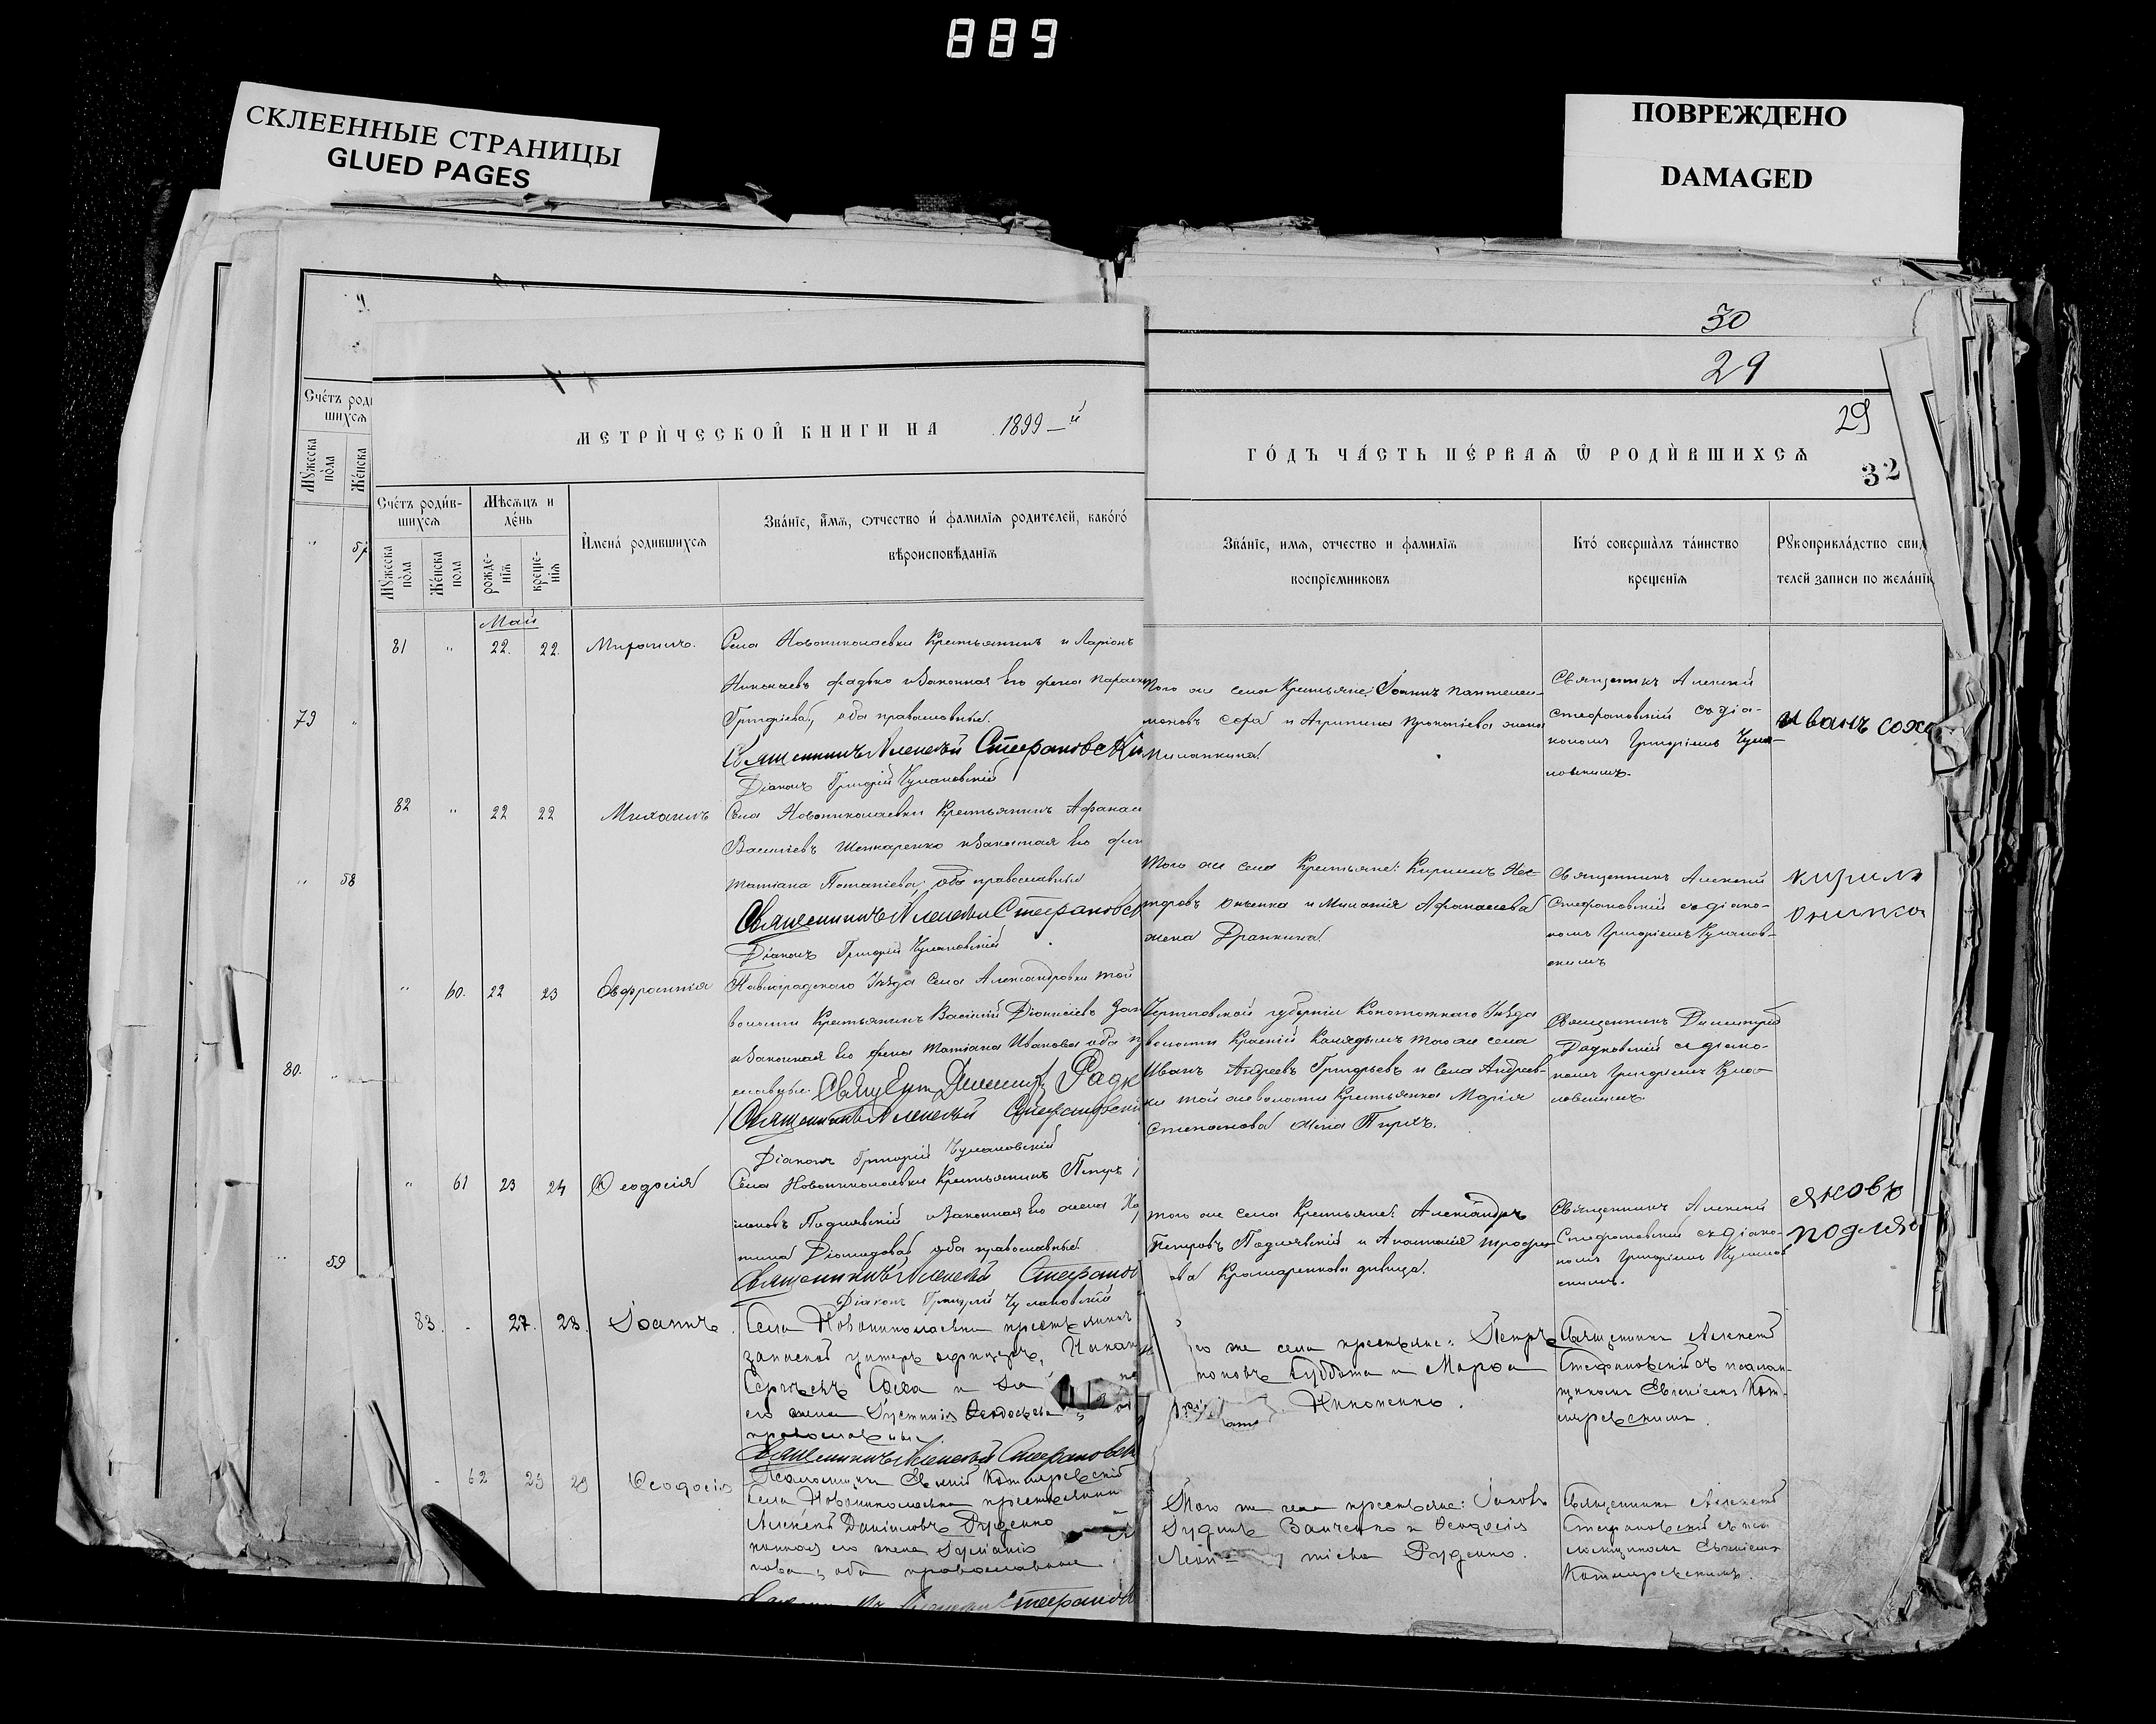 889
СКЛЕЕННЫЕ СТРАНИЦЫ
GLUED PAGES
ПОВРЕЖДЕНО
DAMAGED
30
29
29
32
МЕТРИ́ЧЕСКОЙ КНИГИ НА 1899-й
ГО́ДЪ ЧА́СТЬ ПЕ́РВАѦ Ѿ РОДИ́ВШИХСѦ
Сче́тъ роди́в-
шихсѧ
Мꙋжеска
по́ла
Же́нска
пола
Мѣсѧцъ и
де́нь
рожде-
нїѧ
креще-
нїѧ
И́мена́ родившихсѧ
Зва́нїе, и́мѧ, отчество и́ фамилїѧ родителей, како́гѡ
вѣроисповѣданїѧ
Зва́нїе, имѧ, отчество и фамилїѧ
воспрїемниковъ
Кто́ соверша̀лъ та́инство
крещенїѧ
Рꙋкоприкла́дство свид
телей записи по жела́нїю
Май
81 " 22. 22.
Села Новониколаевки Крестьянинъ Иларіонъ
Николаевъ и законная его жена Параск
Григоріева, оба православные.
Священникъ Алексѣй Стефановскі
Діаконъ Григорій Чумановскій
Того же села Крестьяне: Іоаннъ Пантелей-
моновъ и Агрипина Прокопіева жена
Священникъ Алексій
Стефановскій съ діа-
кономъ Григоріемъ Чума-
новскимъ.
Иванъ сохо
82 " 22 22 Михаилъ
Села Новониколаевки Крестьянинъ Афанасі
Васильевъ Шепкаренко и законная его жен
Татіана Потапіева, оба православные
Священникъ Алексѣй Стефановск
Діаконъ Григорій Чумановскій
Того же села Крестьяне: Кириллъ Нес-
теровъ и Миланія Афанасьева
жена Дранкина.
Священникъ Алексій
Стефановскій съ діако-
номъ Григоріемъ Чуманов-
скимъ
кирила
" 60. 22 23 Евфросинія
Павлоградскаго Уѣзда Села Александровки той
волости Крестьянинъ Василій Діонисіевъ
и законная его жена Татіана Иванова оба п
славные. Димитрій Радк
Священникъ Алексѣй Стефановскі
Діаконъ Григорій Чумановскій
Черниговской губерніи Конотопскаго Уѣзда
волости Красній того же села
Иванъ Андреевъ Григорьевъ и Села Андреев-
ки той же волости Крестьянка Марія
Степанова жена Пирхъ.
Священникъ Димитрій
Радковскій съ діако-
номъ Григоріемъ Чума-
новскимъ.
" 61 23 24 Ѳеодосія
Села Новониколаевки Крестьянинъ Петръ
моновъ Подлявскій и законная его жена Ха
тина Діомидова, оба православные
Священникъ Алексѣй Стефанов
Діаконъ Григорій Чумановскій
Того же села Крестьяне: Александръ
Петровъ Подлявскій и Анастасія Трофи-
ова Крамаренкова дѣвица.
Священникъ Алексій
Стефановскій съ діако-
номъ Григоріемъ Чуманов
скимъ.
яковъ
подляв
83. - 27. 28. Іоаннъ.
Села Новониколаевки крестьянинъ
запасной унтеръ офицеръ, Никан
Сергѣевъ Соха и за
его жена Іустинія Ѳеодосьева
православные
Священникъ Алексѣй Стефановск
Псаломщикъ Евѳимій Котляревскій
го же села крестьяне: Петръ
поновъ Суббота и Марѳа
Никоненко.
Священникъ Алексѣй
Стефановскій съ псалом-
щикомъ Евѳиміемъ Кот-
ляревскимъ.
- 62 29 29 Ѳеодосія
Села Новониколаевки крестьянинъ
Алексѣй Даніиловъ Руденко
конная его жена
нова, оба православные
Стефанов
Того же села крестьяне: Іаковъ
Ванченко и Ѳеодосія
Леон тіева Руденко.
Священникъ Алексѣй
Стефановскій съ пса
ломщикомъ Евѳиміемъ
Котляревскимъ.
Сче́тъ роди
шихсѧ
Мꙋжеска
по́ла
Же́нска
" 57
79 "
" 58
80. "
" 59